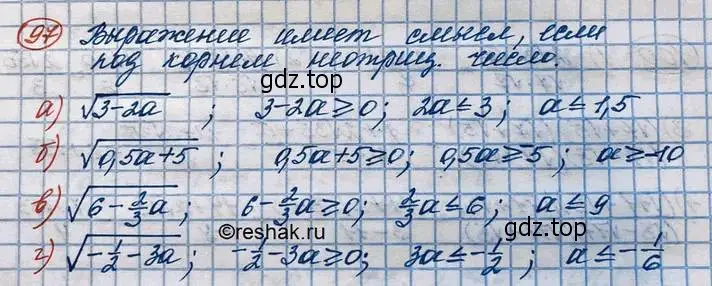 97 Выражение имеет смысл, если
под корнем неотриц. число.
gdz.top
а) √3-2a ; 3-2a≥0; 2a≤3; a≤1,5
б) √0,5a+5 ; 0,5a+5≥0; 0,5a≥-5; a≥-10
в) √6-2/3a ; 6-2/3a≥0; 2/3a≤6; a≤9
©reshak.ru gdz.top
г) √-1/2-3a ; -1/2-3a≥0; 3a≤-1/2; a≤-1/6